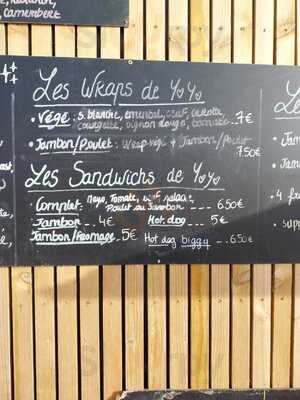 camembert
Les Wraps de YoYo
• Végé : s. blanche, emmental, œuf, carotte,
courgette, oignon rouge, tomate .. 7€
• Jambon/Poulet : Wrap végé + Jambon/Poulet
7.50€
Les Sandwichs de YoYo
• Complet : Mayo, Tomate, œuf, salade,
Poulet ou Jambon --- 6.50€
• Jambon .. 4€ Hot dog ---- 5€
Jambon/Fromage .5€ Hot dog biggy -- 6.50€